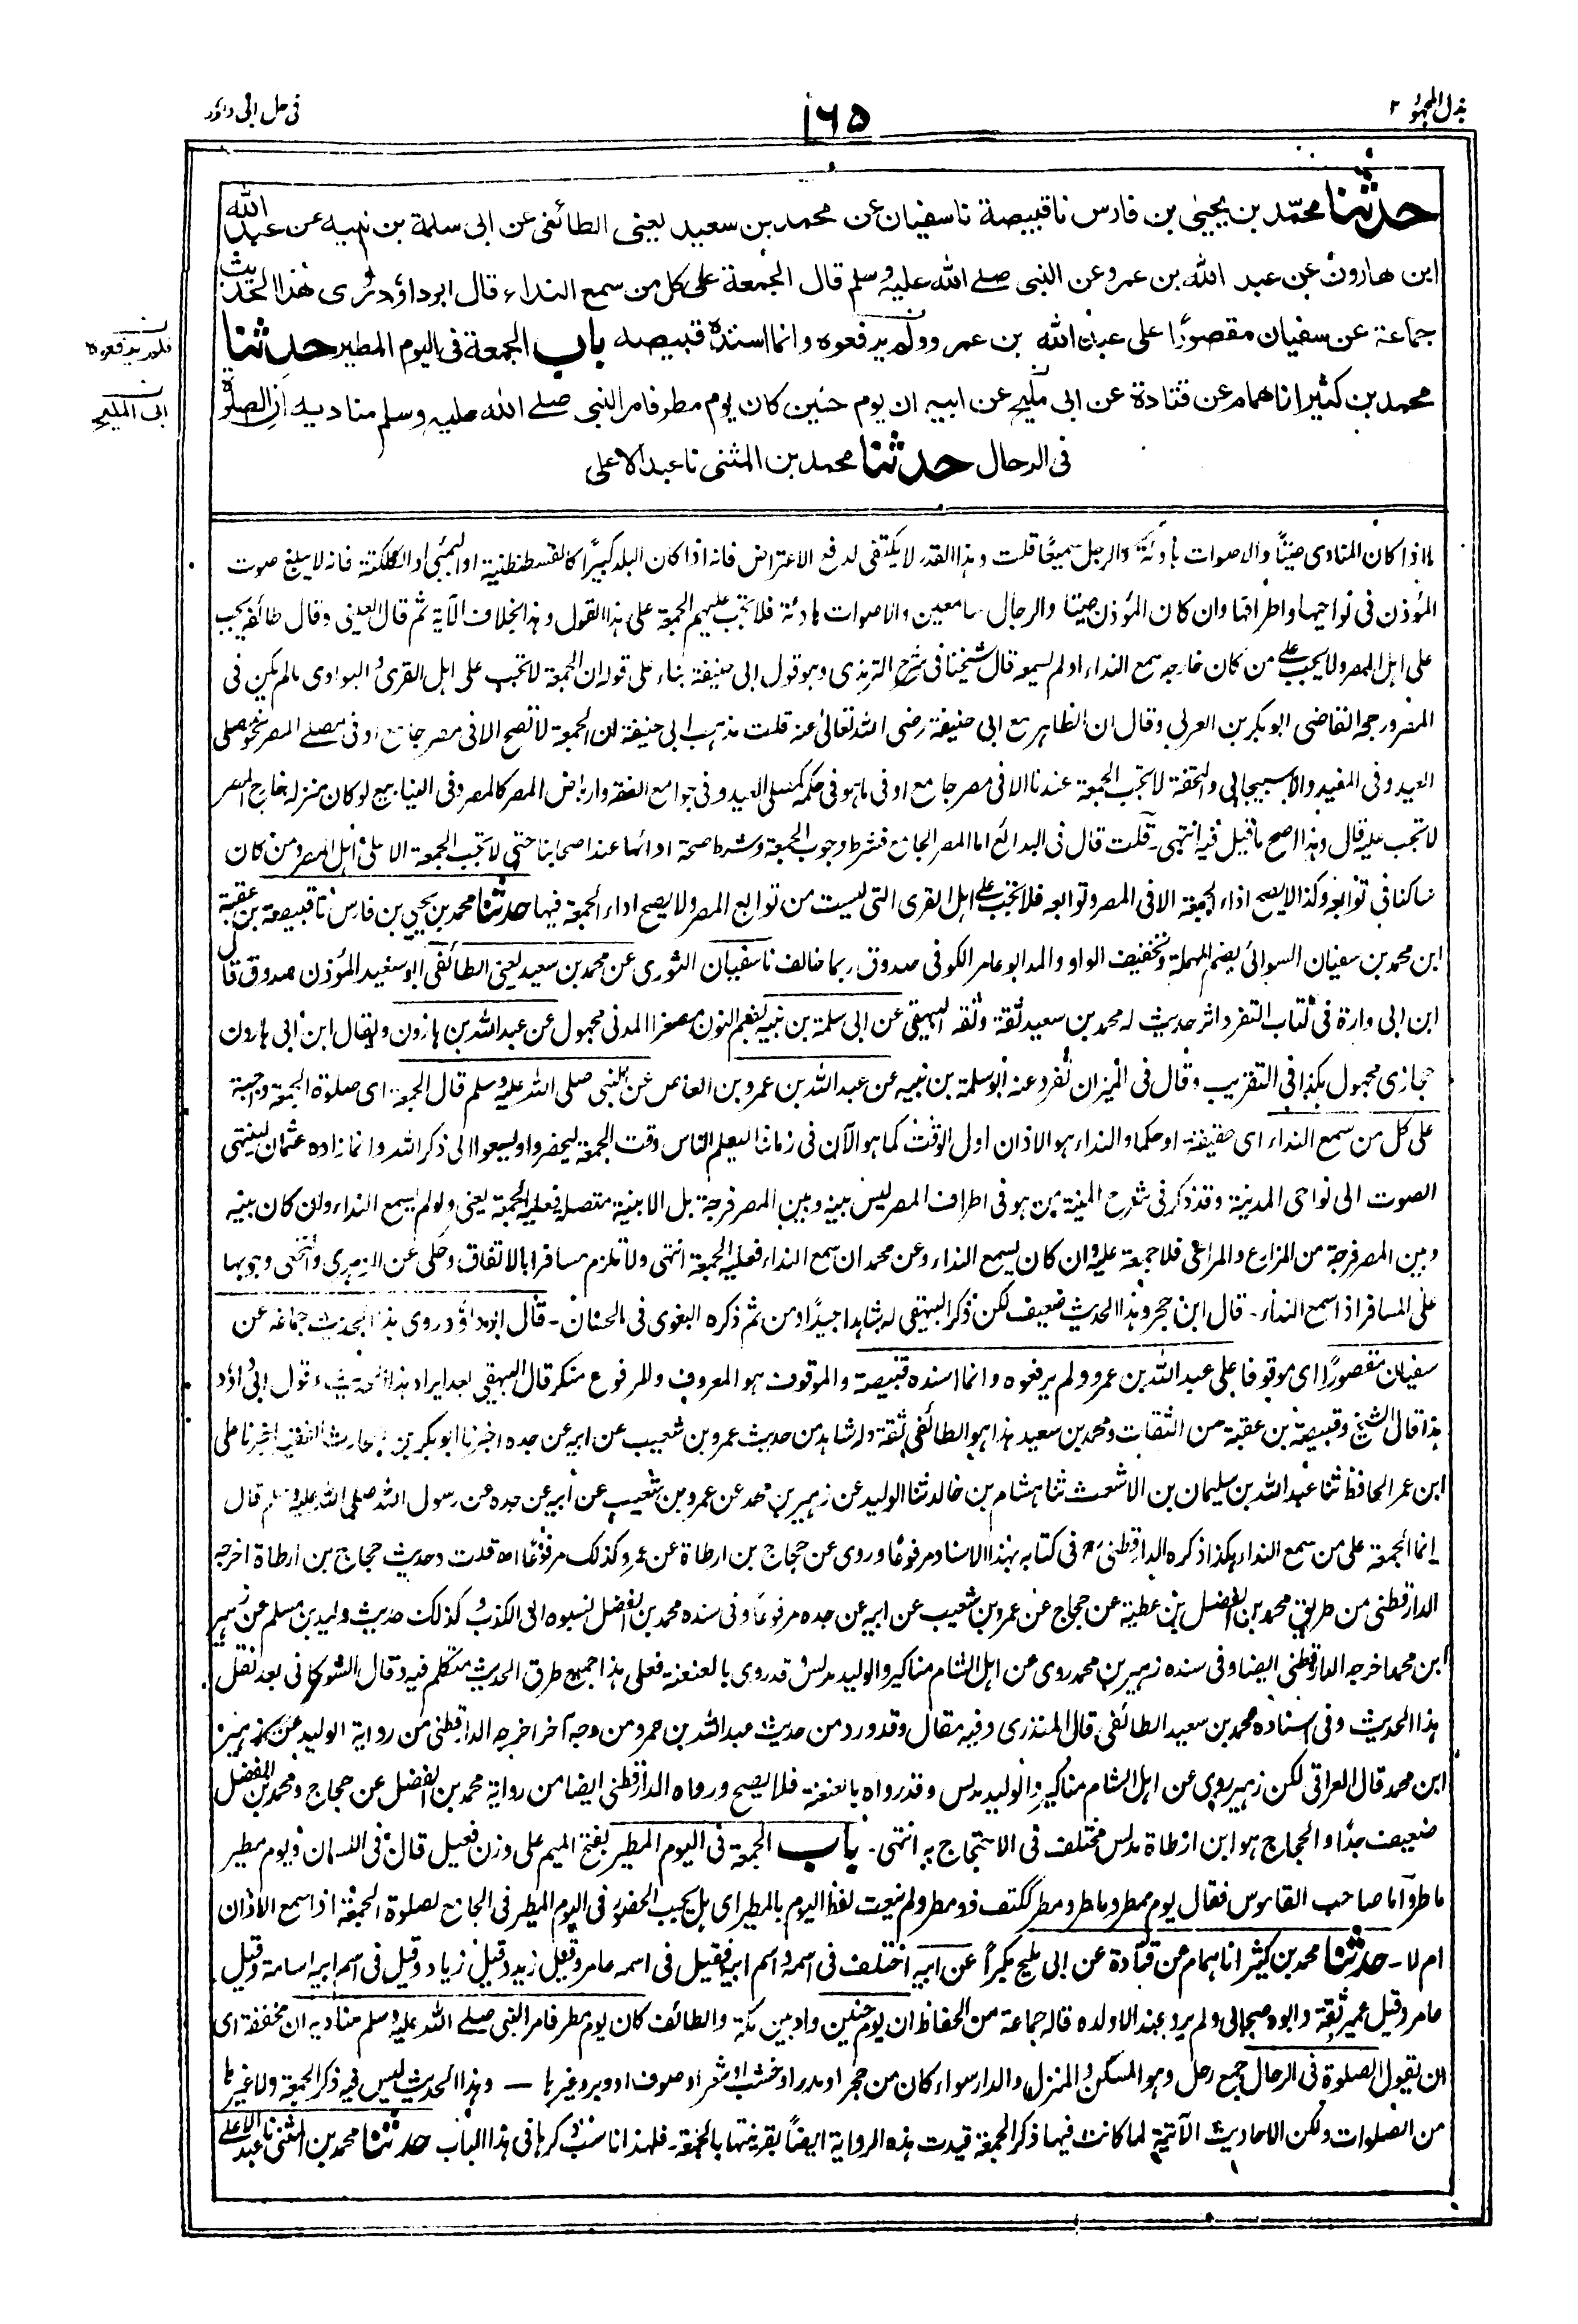 بذل المجهود ٢
١٦٥
في حل ابي داؤد
حدثنا محمّد بن يحيىٰ بن فارس نا قبيصة نا سفيان عن محمد بن سعيد يعني الطائفي عن ابي سلمة بن نبيه عن عبد الله
ابن هارون عن عبد الله بن عمرو عن النبي صلے الله عليه وسلم قال الجمعة على كل من سمع النداء قال ابوداؤد روى هٰذا الحديث
جماعة عن سفيان مقصورًا على عبد الله بن عمرو ولم يرفعوه وانما اسنده قبيصه باب الجمعة في اليوم المطير حدثنا
محمد بن كثير انا همام عن قتادة عن ابي مليح عن ابيه ان يوم حنين كان يوم مطر فامر النبي صلے الله عليه وسلم مناديه ان الصلوة
في الرحال حدثنا محمد بن المثنى نا عبد الاعلى
ن
فلم يرفعوه
ن
ابي المليح
ما اذا كان المنادى صيتًا والاصوات هادئة والرجل سميعًا قلت وهذا القدر لا يكتفى لدفع الاعتراض فانه اذا كان البلد كبيرًا كالقسطنطنية او البمبئي او الكلكتة فانه لا يبلغ صوت
المؤذن في نواحيها واطرافها وان كان المؤذن صيتا والرجال سامعين والاصوات هادئة فلا تجب عليهم الجمعة على هذا القول وهذا بخلاف الآية ثم قال العيني وقال طائفة يجب
على اهل المصر ولا يجب على من كان خارجه سمع النداء او لم يسمعه قال شيخنا في شرح الترمذي وهو قول ابي حنيفة بناء على قوله ان الجمعة لا تجب على اهل القرى والبوادى ما لم يكن في
المصر ورجحه القاضي ابوبكر بن العربي وقال ان الظاهر مع ابي حنيفة رضى الله تعالى عنه قلت مذهب ابي حنيفة ان الجمعة لا تصح الا في مصر جامع او في مصلے المصر نحو مصلى
العيد وفي المفيد والاسبيجابي والتحفة لا تجب الجمعة عندنا الا في مصر جامع او في ما هو في حكمه كمصلى العيد وفي جوامع الفقه وارباض المصر كالمصر وفي الينابيع لو كان منزله خارج المصر
لا تجب عليه قال وهذا اصح ما قيل فيه انتهى۔ قلت قال في البدائع اما المصر الجامع فشرط وجوب الجمعة وشرط صحة ادائها عند اصحابنا حتى لا تجب الجمعة الا على اهل المصر ومن كان
ساكنا في توابعه وكذا لا يصح اداء الجمعة الا في المصر وتوابعه فلا تجب على اهل القرى التى ليست من توابع المصر ولا يصح اداء الجمعة فيها حدثنا محمد بن يحيى بن فارس نا قبيصة بن عقبة
ابن محمد بن سفيان السوائي بضم المهملة وتخفيف الواو والمد ابو عامر الكوفي صدوق ربما خالف نا سفيان الثورى عن محمد بن سعيد يعني الطائفي ابو سعيد المؤذن صدوق قال
ابن ابى وارة في كتاب التفرد اثر حديث له محمد بن سعيد ثقة وثقه البيهقي عن ابي سلمة بن نبيه بضم النون مصغرا المدني مجهول عن عبد الله بن هارون ويقال ابن ابي هارون
حجازى مجهول هكذا في التقريب وقال في الميزان تفرد عنه ابو سلمة بن نبيه عن عبد الله بن عمرو بن العاص عن النبي صلى الله عليه وسلم قال الجمعة اى صلوة الجمعة واجبة
على كل من سمع النداء اى حقيقة او حكما والنداء هو الاذان اول الوقت كما هو الآن في زماننا ليعلم الناس وقت الجمعة ليحضروا ويسعوا الى ذكر الله وانما زاده عثمان لينتهى
الصوت الى نواحى المدينة وقد ذكر في شرح المنية من هو في اطراف المصر ليس بينه وبين المصر فرجة بل الابنية متصلة فعليه الجمعة يعني ولو لم يسمع النداء وان كان بينه
وبين المصر فرجة من المزارع والمراعى فلا جمعة عليه وان كان يسمع النداء وعن محمد ان سمع النداء فعليه الجمعة انتهى ولا تلزم مسافرا بالاتفاق وحكى عن الزهرى والنخعى وجوبها
على المسافر اذا سمع النداء۔ قال ابن حجر وهذا الحديث ضعيف لكن ذكر البيهقي له شاهدا جيدًا ومن ثم ذكره البغوى في الحسان۔ قال ابوداؤد روى هذا الحديث جماعة عن
سفيان مقصورًا اى موقوفا على عبد الله بن عمرو ولم يرفعوه وانما اسنده قبيصة والموقوف هو المعروف والمرفوع منكر قال البيهقي بعد ايراد هذا الحديث وقول ابى داؤد
هذا قال الشيخ وقبيصة بن عقبة من الثقات ومحمد بن سعيد هذا هو الطائفي ثقة وله شاهد من حديث عمرو بن شعيب عن ابيه عن جده اخبرنا ابو بكر بن الحارث الفقيه اخبرنا على
ابن عمر الحافظ ثنا عبد الله بن سليمان بن الاشعث ثنا هشام بن خالد ثنا الوليد عن زهير بن محمد عن عمرو بن شعيب عن ابيه عن جده عن رسول الله صلى الله عليه وسلم قال
انما الجمعة على من سمع النداء هكذا ذكره الدارقطنى في كتابه بهذا الاسناد مرفوعًا وروى عن حجاج بن ارطاة عن عمرو كذلك مرفوعًا اه قلت وحديث حجاج بن ارطاة اخرجه
الدارقطنى من طريق محمد بن الفضل بن عطية عن حجاج عن عمرو بن شعيب عن ابيه عن جده مرفوعًا وفي سنده محمد بن الفضل نسبوه الى الكذب وكذلك حديث وليد بن مسلم عن زهير
ابن محمد اخرجه الدارقطني ايضا وفي سنده زهير بن محمد روى عن اهل الشام مناكير والوليد مدلس وقد روى بالعنعنة فعلى هذا جميع طرق الحديث متكلم فيه وقال الشوكاني بعد نقل
هذا الحديث وفي اسناده محمد بن سعيد الطائفي قال المنذرى وفيه مقال وقد ورد من حديث عبد الله بن عمرو من وجه آخر اخرجه الدارقطنى من رواية الوليد عن زهير
ابن محمد قال العراقي لكن زهير روى عن اهل الشام مناكير والوليد مدلس وقد رواه بالعنعنة فلا يصح ورواه الدارقطني ايضا من رواية محمد بن الفضل عن حجاج ومحمد بن الفضل
ضعيف جدًا والحجاج هو ابن ارطاة مدلس مختلف في الاحتجاج به انتهى۔ باب الجمعة في اليوم المطير بفتح الميم على وزن فعيل قال في اللسان ويوم مطير
ماطر واما صاحب القاموس فقال يوم ممطر وماطر ومطر ككتف ذو مطر ولم ينعت لفظ اليوم بالمطير اى هل يجب الحضور في اليوم المطير في الجامع لصلوة الجمعة اذا سمع الاذان
ام لا۔ حدثنا محمد بن كثير انا همام عن قتادة عن ابي مليح مكبرًا عن ابيه اختلف في اسمه واسم ابيه فقيل في اسمه عامر وقيل زيد وقيل زياد وقيل في اسم ابيه اسامة وقيل
عامر وقيل عمير ثقة وابوه صحابي ولم يرو عنه الا ولده قاله جماعة من الحفاظ ان يوم حنين واد بين مكة والطائف كان يوم مطر فامر النبي صلے الله عليه وسلم مناديه ان مخففة اى
ان يقول الصلوة في الرحال جمع رحل وهو المسكن والمنزل والدار سواء كان من حجر او مدر او خشب او شعر او صوف او وبر وغيرها — وهذا الحديث ليس فيه ذكر الجمعة ولا غيرها
من الصلوات ولكن الاحاديث الآتية لما كانت فيها ذكر الجمعة قيدت هذه الرواية ايضًا بقرينتها بالجمعة۔ فلهذا ناسب ذكرها في هذا الباب حدثنا محمد بن المثنى نا عبد الاعلے